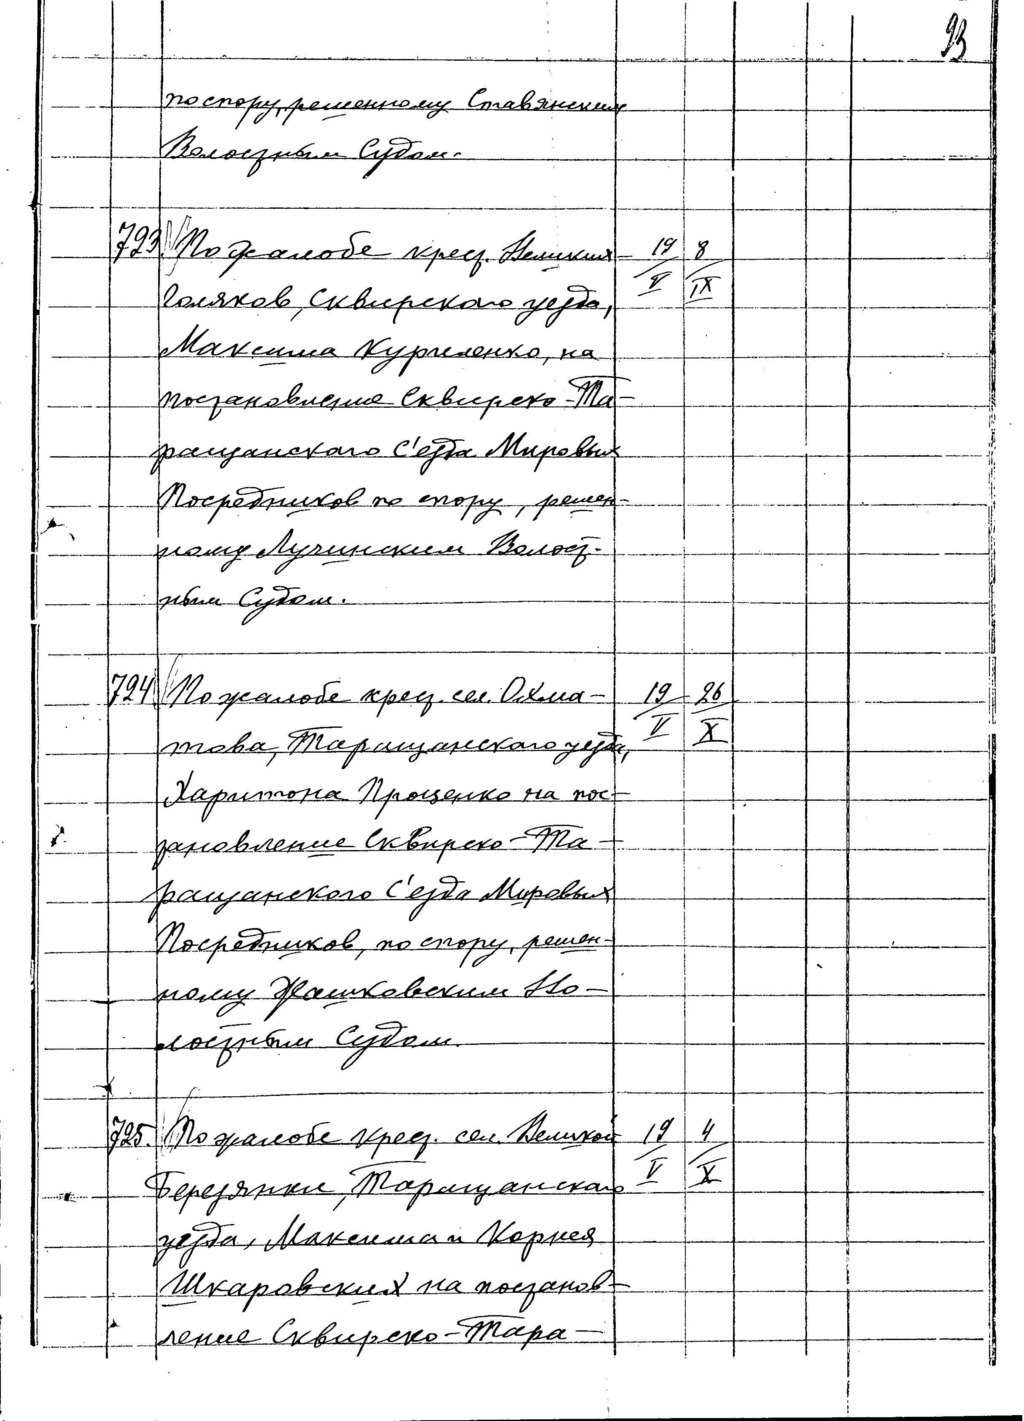 93
по спору, решенному Ставянским
Волостным Судом.
723. По жалобе крест. Великих 19/V 8/IX
Голяков, Сквирского уезда,
Максима Куриленко, на
постановление Сквирско-Та-
ращанского С'езда Мировых
Посредников по спору, решен-
ному Лучинским Волост-
ным Судом.
724 По жалобе крест. сел. Охма- 19/V 26/X
това, Таращанского уезда,
Харитона Проценко на пос-
тановление Сквирско-Та-
ращанского С'езда Мировых
Посредников, по спору, решен-
ному Жашковским Во-
лостным Судом.
725. По жалобе крест. сел. Великой 19/V 4/X
Березянки, Таращанского
уезда, Максима и Корнея
Шкаровских на постанов-
ление Сквирско-Тара-